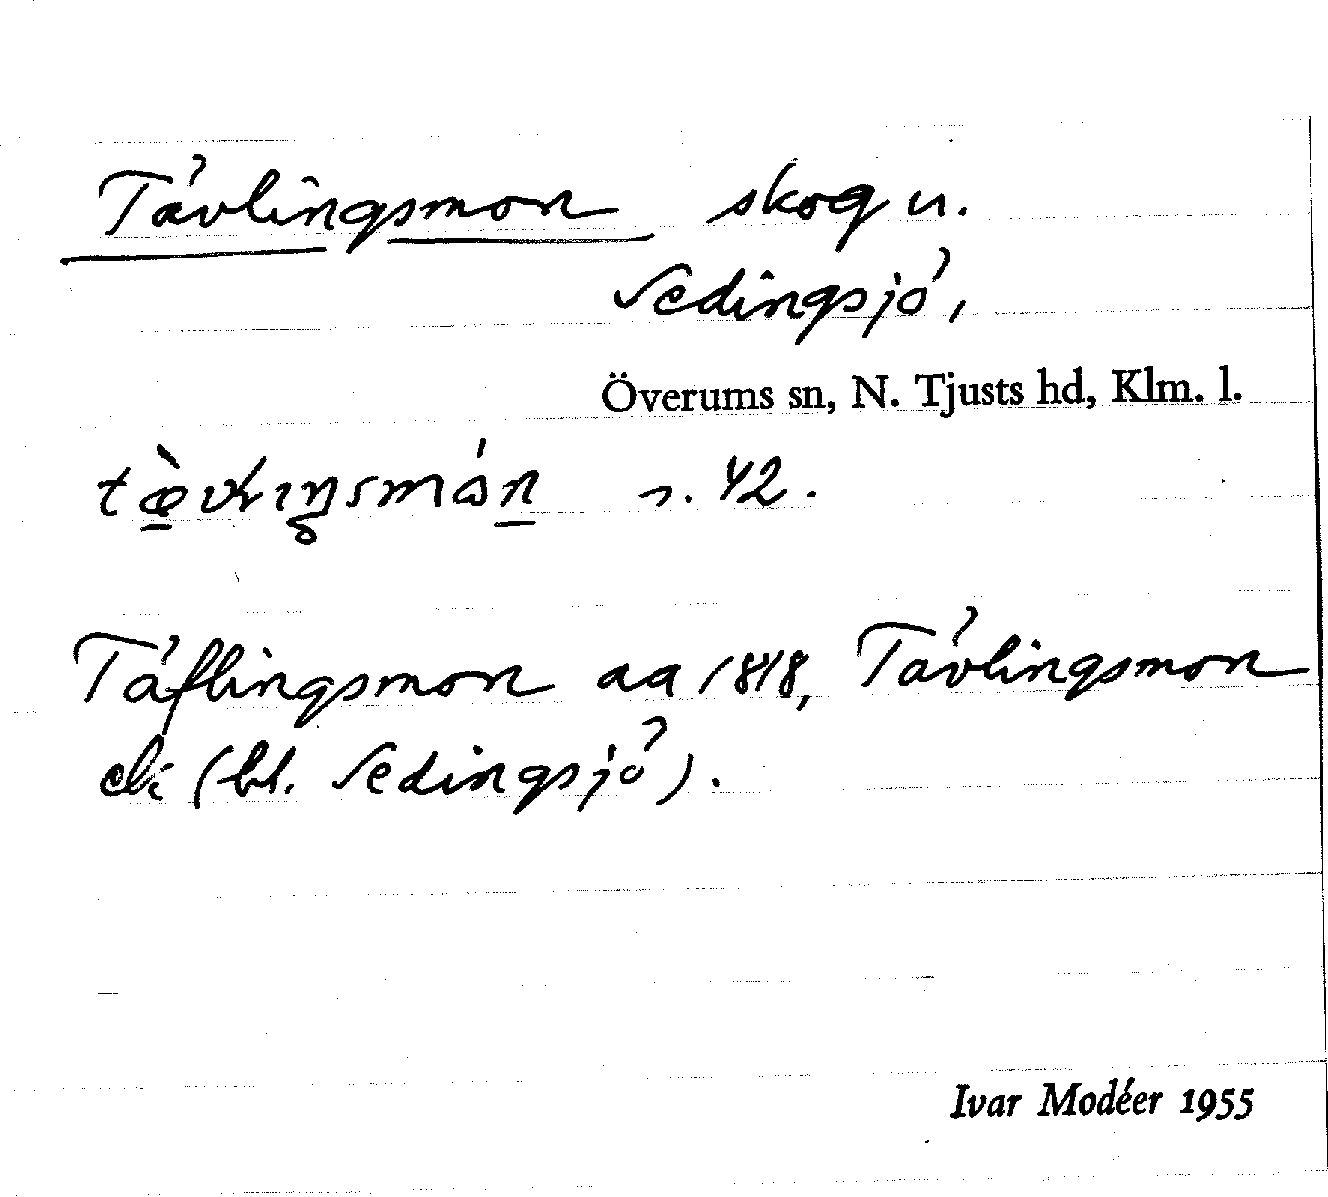 Tävlingsmon skog u.
Sedingsjö,
Överums sn, N. Tjusts hd, Klm. l.
s. 42.
Täflingsmon aa 1818, Tävlingsmon
ek (bl. Sedingsjö).
Ivar Modéer 1955